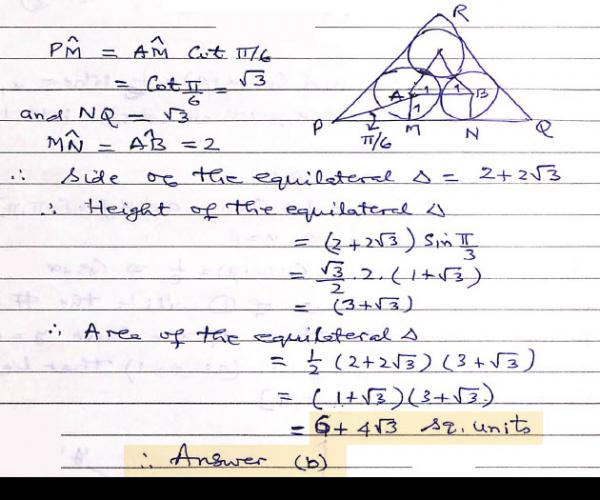 PM̂ = AM̂ Cot π/6
= Cot π/6 = √3
and NQ = √3
MN̂ = AB̂ = 2
∴ Side of the equilateral Δ = 2+2√3
∴ Height of the equilateral Δ
= (2+2√3) Sin π/3
= √3/2 . 2 . (1+√3)
= (3+√3)
∴ Area of the equilateral Δ
= 1/2 (2+2√3) (3+√3)
= (1+√3) (3+√3)
= 6+4√3 sq. units
∴ Answer (b)
R
A 1 1 B
1
P M N Q
π/6